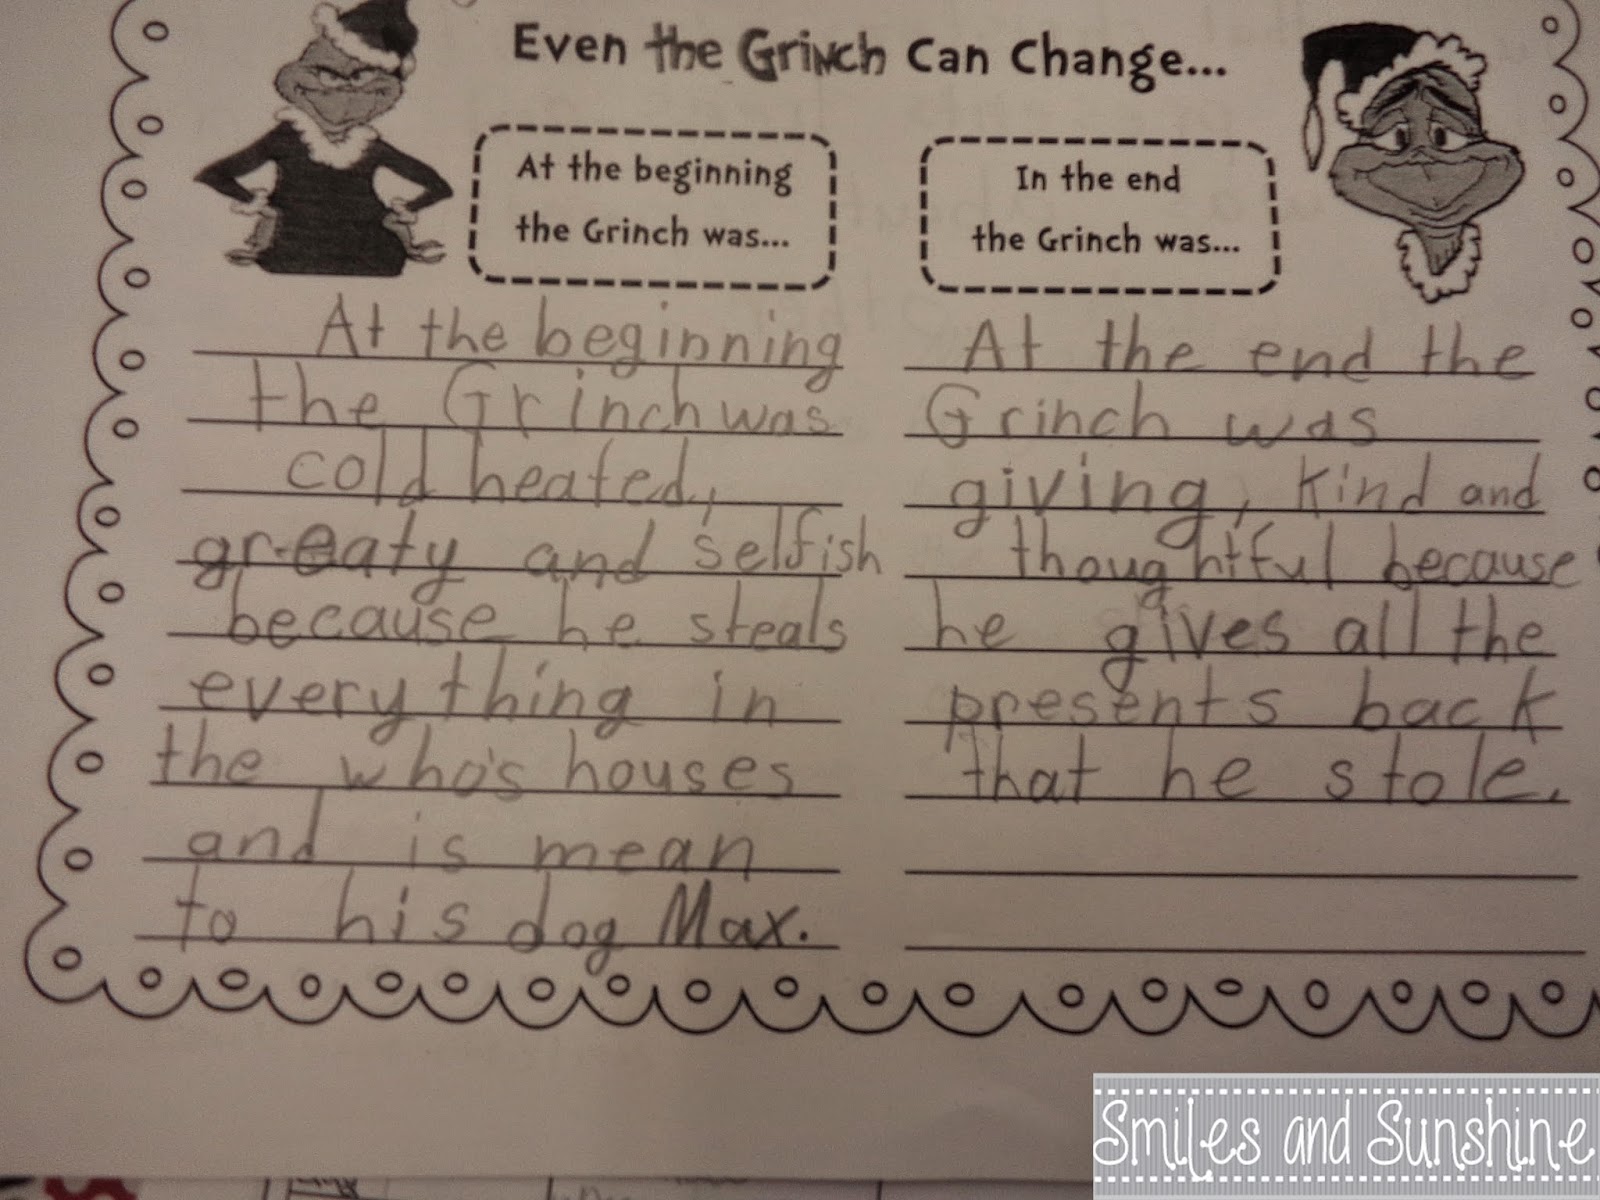 Even the Grinch Can Change...
At the beginning
the Grinch was...
At the beginning
the Grinch was
cold heated,
greaty and selfish
because he steals
everything in
the who's houses
and is mean
to his dog Max.
In the end
the Grinch was...
At the end the
Grinch was
giving, kind and
thoughtful because
he gives all the
presents back
that he stole.
Smiles and Sunshine